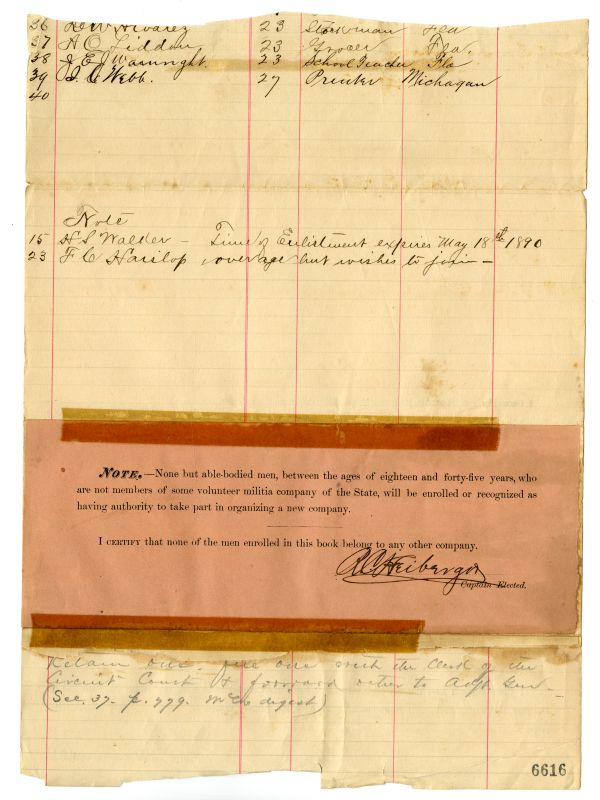 36 Alvarez 23 Stockman Fla
37 A C Liddon 23 Grocer Fla.
38 J E J Wainright. 23 School Teacher Fla
39 J. C. Webb. 27 Printer Michagan
40
Note
15 H S Walker - Time of Enlistment expires May 18th 1890
23 F C Haislop , over age but wishes to join -
NOTE.—None but able-bodied men, between the ages of eighteen and forty-five years, who
are not members of some volunteer militia company of the State, will be enrolled or recognized as
having authority to take part in organizing a new company.
I CERTIFY that none of the men enrolled in this book belong to any other company.
R C Heiberger
Captain Elected.
Retain one. file one with the Clerk of the
Circuit Court & forward other to Adjt Gen -
(Sec. 37. p. 779. McC digest)
6616